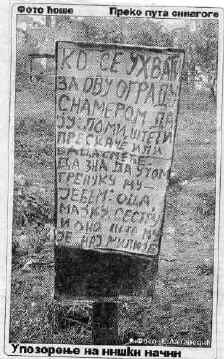 Фото ћоше Преко пута синагоге
КО СЕ УХВАТИ
ЗА ОВУ ОГРАДУ
СНАМЕРОМ ДА
ЈУ ПОМИШТЕТИ
ПРЕСКАЧЕ ИЛИ
ДА ЗНА ДА У ТОМ
ТРЕНУКУ МУ-
ЈЕБЕМ: ОЦА
МАЈКУ СЕСТРУ
И ОНО ШТО МУ
ЈЕ НАЈ МИЛИЈЕ
Упозорење на нишки начин